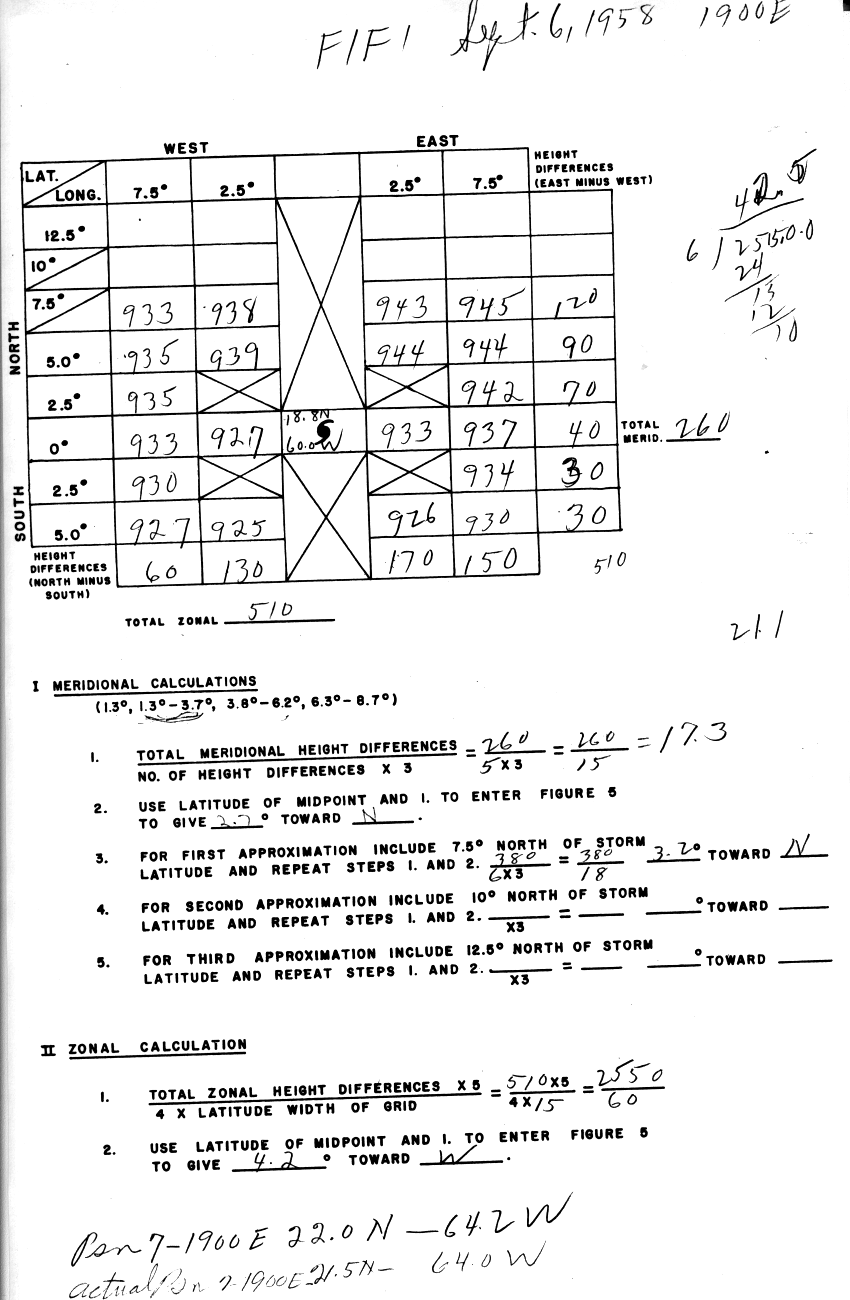 FIFI Sept. 6, 1958 1900E
WEST EAST
HEIGHT
DIFFERENCES
(EAST MINUS WEST)
LAT.
LONG. 7.5° 2.5° 2.5° 7.5°
12.5°
10°
NORTH
7.5° 933 938 943 945 120
5.0° 935 939 944 944 90
2.5° 935 942 70
18.8N
0° 933 927 60.0W 933 937 40
TOTAL
MERID. 260
SOUTH
2.5° 930 934 30
5.0° 927 925 926 930 30
HEIGHT
DIFFERENCES
(NORTH MINUS
SOUTH)
60 130 170 150 510
TOTAL ZONAL 510
6 ) 255.0.0
24
13
12
10
21.1
I MERIDIONAL CALCULATIONS
(1.3°, 1.3°-3.7°, 3.8°-6.2°, 6.3°-8.7°)
1. TOTAL MERIDIONAL HEIGHT DIFFERENCES = 260 = 260 = 17.3
NO. OF HEIGHT DIFFERENCES X 3 5 X3 15
2. USE LATITUDE OF MIDPOINT AND 1. TO ENTER FIGURE 5
TO GIVE 2.7° TOWARD N.
3. FOR FIRST APPROXIMATION INCLUDE 7.5° NORTH OF STORM
LATITUDE AND REPEAT STEPS 1. AND 2. 380 = 380 3.2° TOWARD N
6X3 18
4. FOR SECOND APPROXIMATION INCLUDE 10° NORTH OF STORM
LATITUDE AND REPEAT STEPS 1. AND 2. = ° TOWARD
X3
5. FOR THIRD APPROXIMATION INCLUDE 12.5° NORTH OF STORM
LATITUDE AND REPEAT STEPS 1. AND 2. = ° TOWARD
X3
II ZONAL CALCULATION
1. TOTAL ZONAL HEIGHT DIFFERENCES X 5 = 510 X5 = 2550
4 X LATITUDE WIDTH OF GRID 4 X 15 60
2. USE LATITUDE OF MIDPOINT AND 1. TO ENTER FIGURE 5
TO GIVE 4.2 ° TOWARD W.
Psn 7-1900E 22.0 N — 64.2 W
Actual Psn 7-1900E-21.5N- 64.0 W